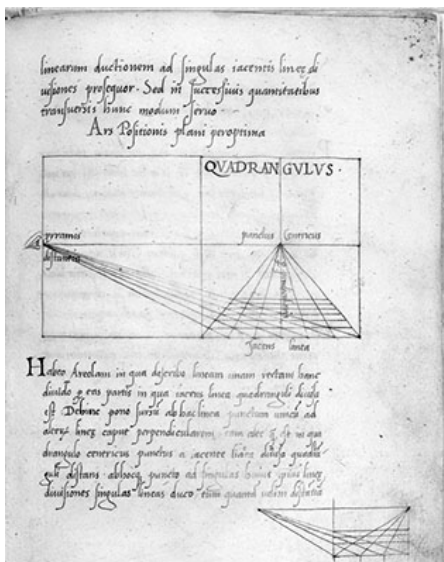 linearum ductionem ad singulas iacentis lineę di
uisiones prosequor. Sed in successiuis quantitatibus
transuersis hunc modum seruo
Ars Positionis plani peroptima
QVADRANGVLVS.
pyramis
distantia
punctus Centricus
Jacens linea
Habeo Areolam in qua describo lineam unam rectam hanc
diuido eas partis in qua iacens linea quadranguli diuisa
est Dehinc pono sursum ab hac linea punctum unicum ad
lineę caput perpendicularem in qua
drangulo centricus punctus a iacente linea diuisa quadra
distans abhocque puncto ad singulas huius lineę
diuisiones singulas lineas duco tum quantum uelim distantia